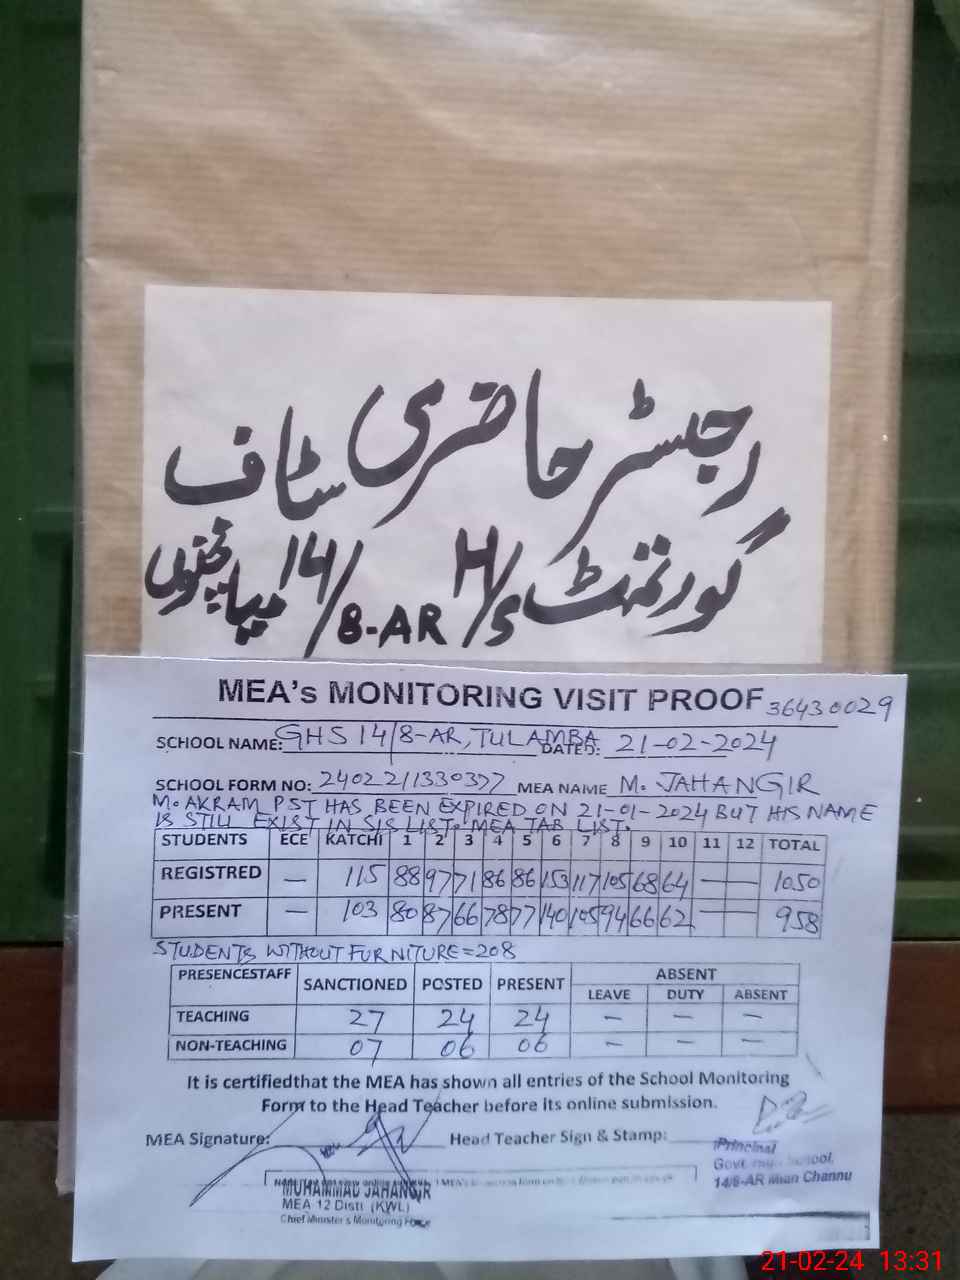 رجسٹر حاضری سٹاف
گورنمنٹ H/S 14/8-AR میاں چنوں
MEA's MONITORING VISIT PROOF 36430029
SCHOOL NAME: GHS 14/8-AR, TULAMBA DATED: 21-02-2024
SCHOOL FORM NO: 2402211330377 MEA NAME M. JAHANGIR
M. AKRAM PST HAS BEEN EXPIRED ON 21-01-2024 BUT HIS NAME
IS STILL EXIST IN SIS LIST. MEA TAB LIST.
STUDENTS ECE KATCHI 1 2 3 4 5 6 7 8 9 10 11 12 TOTAL
REGISTRED — 115 88 97 71 86 86 153 117 105 68 64 — — 1050
PRESENT — 103 80 87 66 78 77 140 105 94 66 62 — — 958
STUDENTS WITHOUT FURNITURE=208
PRESENCESTAFF SANCTIONED POSTED PRESENT ABSENT
LEAVE DUTY ABSENT
TEACHING 27 24 24 — — —
NON-TEACHING 07 06 06 — — —
It is certifiedthat the MEA has shown all entries of the School Monitoring
Form to the Head Teacher before its online submission.
MEA Signature: Head Teacher Sign & Stamp:
Principal
Govt. High School,
14/8-AR Mian Channu
MUHAMMAD JAHANGIR
MEA 12 Distt. (KWL)
Chief Minister's Monitoring Force
21-02-24 13:31